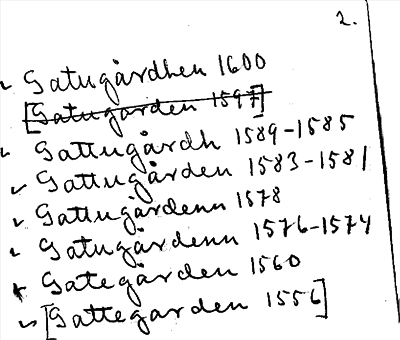 2.
Gatugårdhen 1600
[Gatugården 1597]
Gattugårdh 1589-1585
Gattugården 1583-1581
Gattugårdenn 1578
Gatugårdenn 1576-1574
Gategården 1560
[Gattegarden 1556]